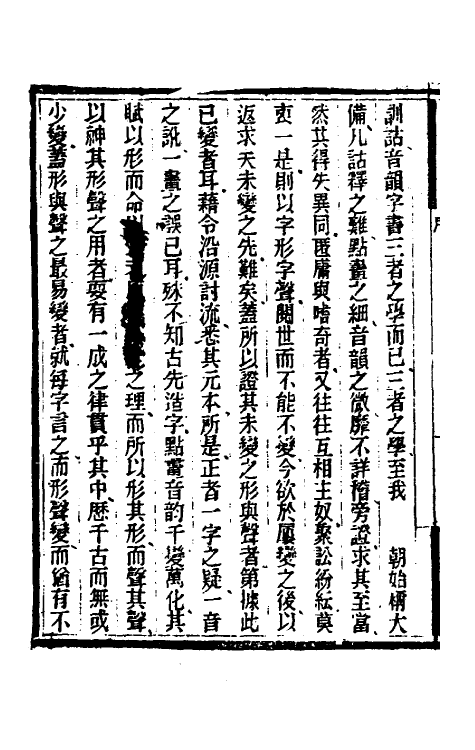 訓詁音韻字書三者之學而已三者之學至我　朝始稱大
備凡詁釋之難點畫之細音韻之微靡不詳稽旁證求其至當
然其得失異同匿庸與嗜奇者又往往互相主奴聚訟紛紜莫
衷一是則以字形字聲閱世而不能不變今欲於屢變之後以
返求夫未變之先難矣蓋所以證其未變之形與聲者第據此
已變者耳藉令沿源討流悉其元本所是正者一字之疑一音
之訛一畫之誤已耳殊不知古先造字點畫音韵千變萬化其
賦以形而命以之理而所以形其形而聲其聲
以神其形聲之用者要有一成之律貫乎其中歷千古而無或
少變蓋形與聲之最易變者就每字言之而形聲變而猶有不